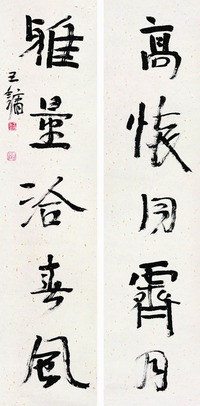 高懷同霽月
雅量洽春風
王鏞